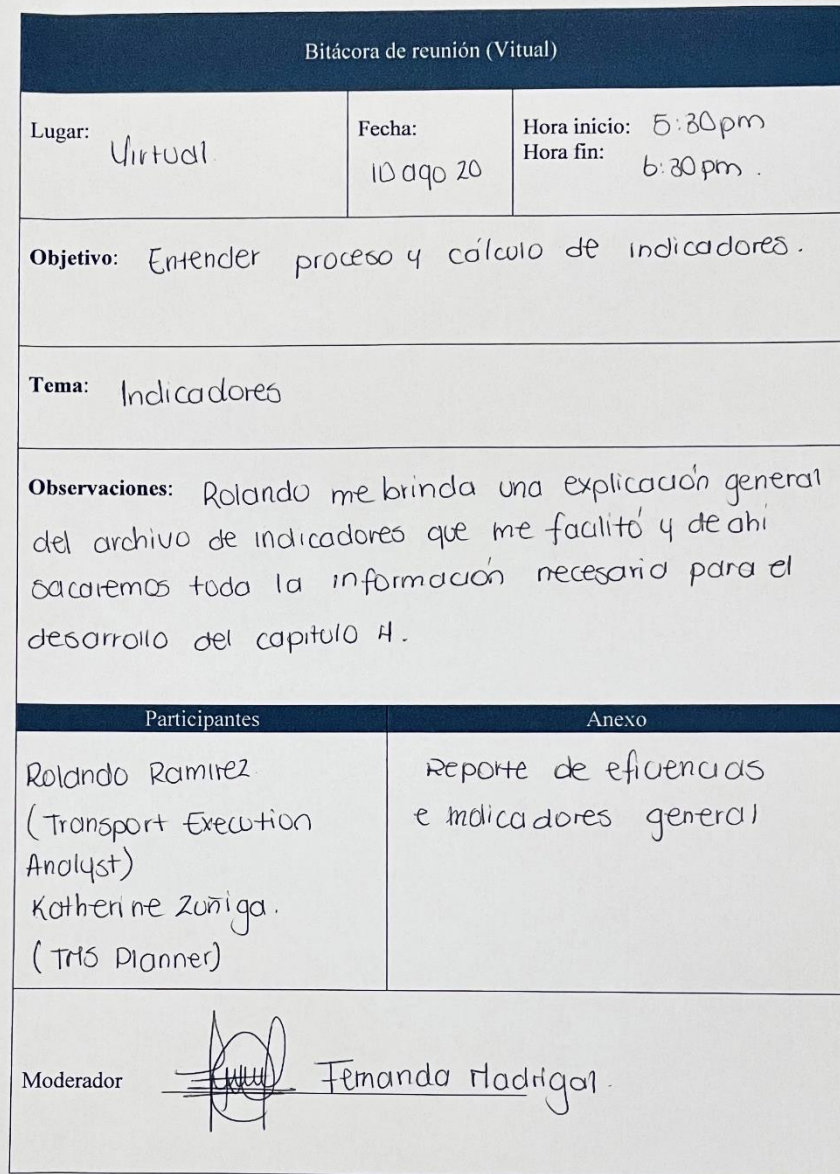 Bitácora de reunión (Vitual)
Lugar: Virtual
Fecha: 10 ago 20
Hora inicio: 5:30pm
Hora fin: 6:30 pm.
Objetivo: Entender proceso y cálculo de indicadores.
Tema: Indicadores
Observaciones: Rolando me brinda una explicación general
del archivo de indicadores que me facilitó y de ahi
sacaremos toda la información necesaria para el
desarrollo del capitulo 4.
Participantes
Rolando Ramirez
(Transport Execution
Analyst)
Katherine Zuñiga.
(TMS Planner)
Anexo
Reporte de eficiencias
e indicadores general
Moderador Fernanda Madrigal.